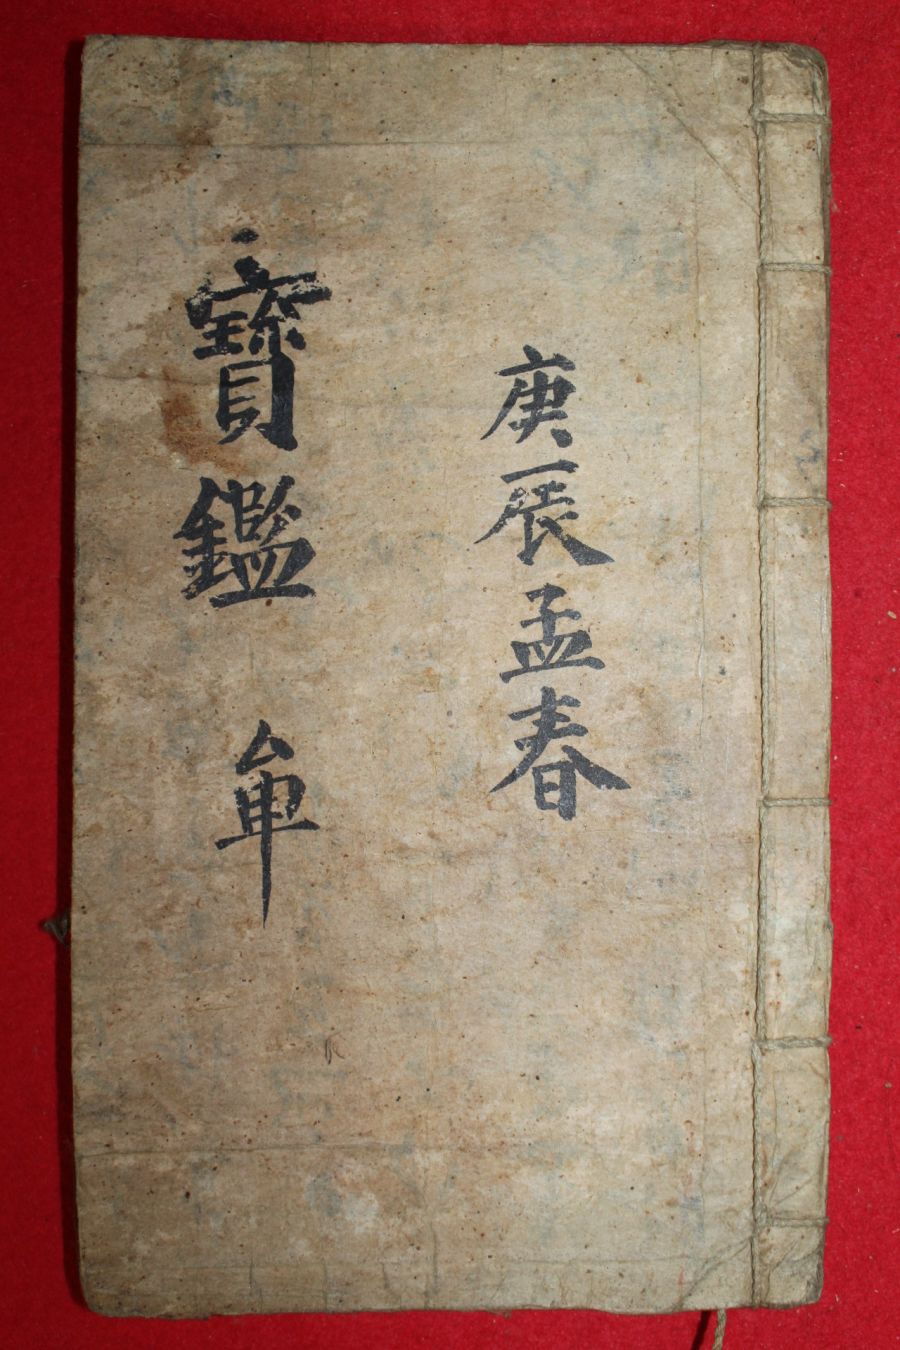 庚辰孟春
寶鑑 单